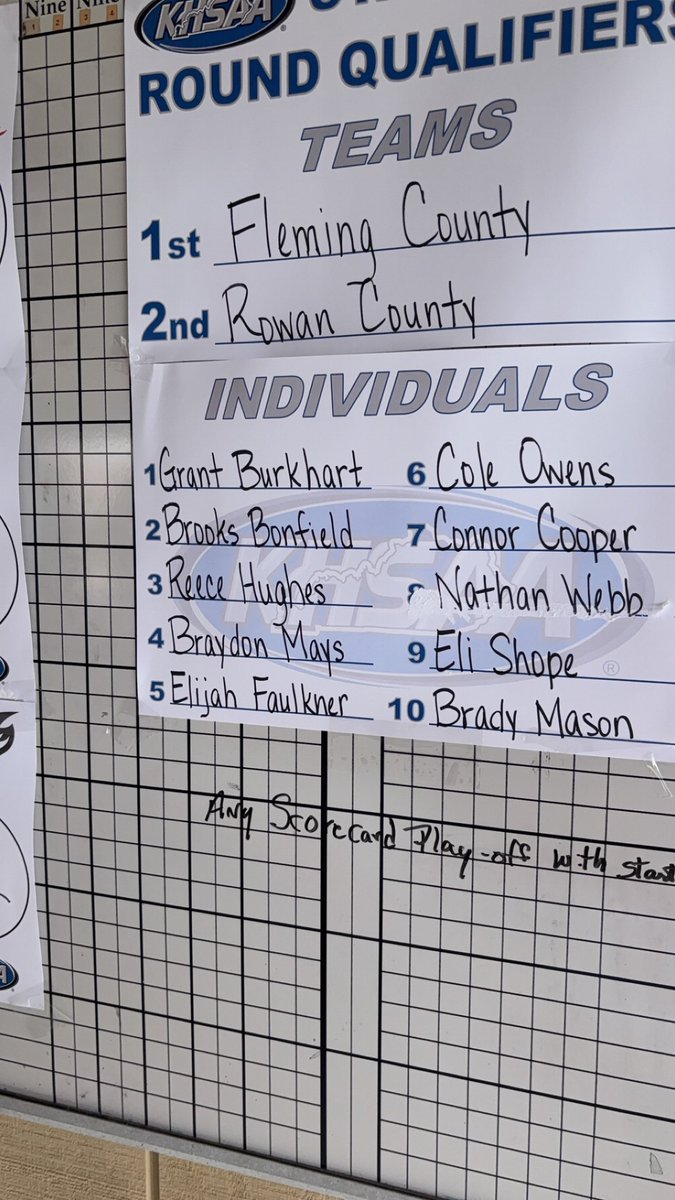 Nine Nine
1 2 3 4
KHSAA
ROUND QUALIFIERS
TEAMS
1st Fleming County
2nd Rowan County
INDIVIDUALS
1 Grant Burkhart
2 Brooks Bonfield
3 Reece Hughes
4 Braydon Mays
5 Elijah Faulkner
6 Cole Owens
7 Connor Cooper
8 Nathan Webb
9 Eli Shope
10 Brady Mason
KHSAA
®
Any Scorecard Play-off with start